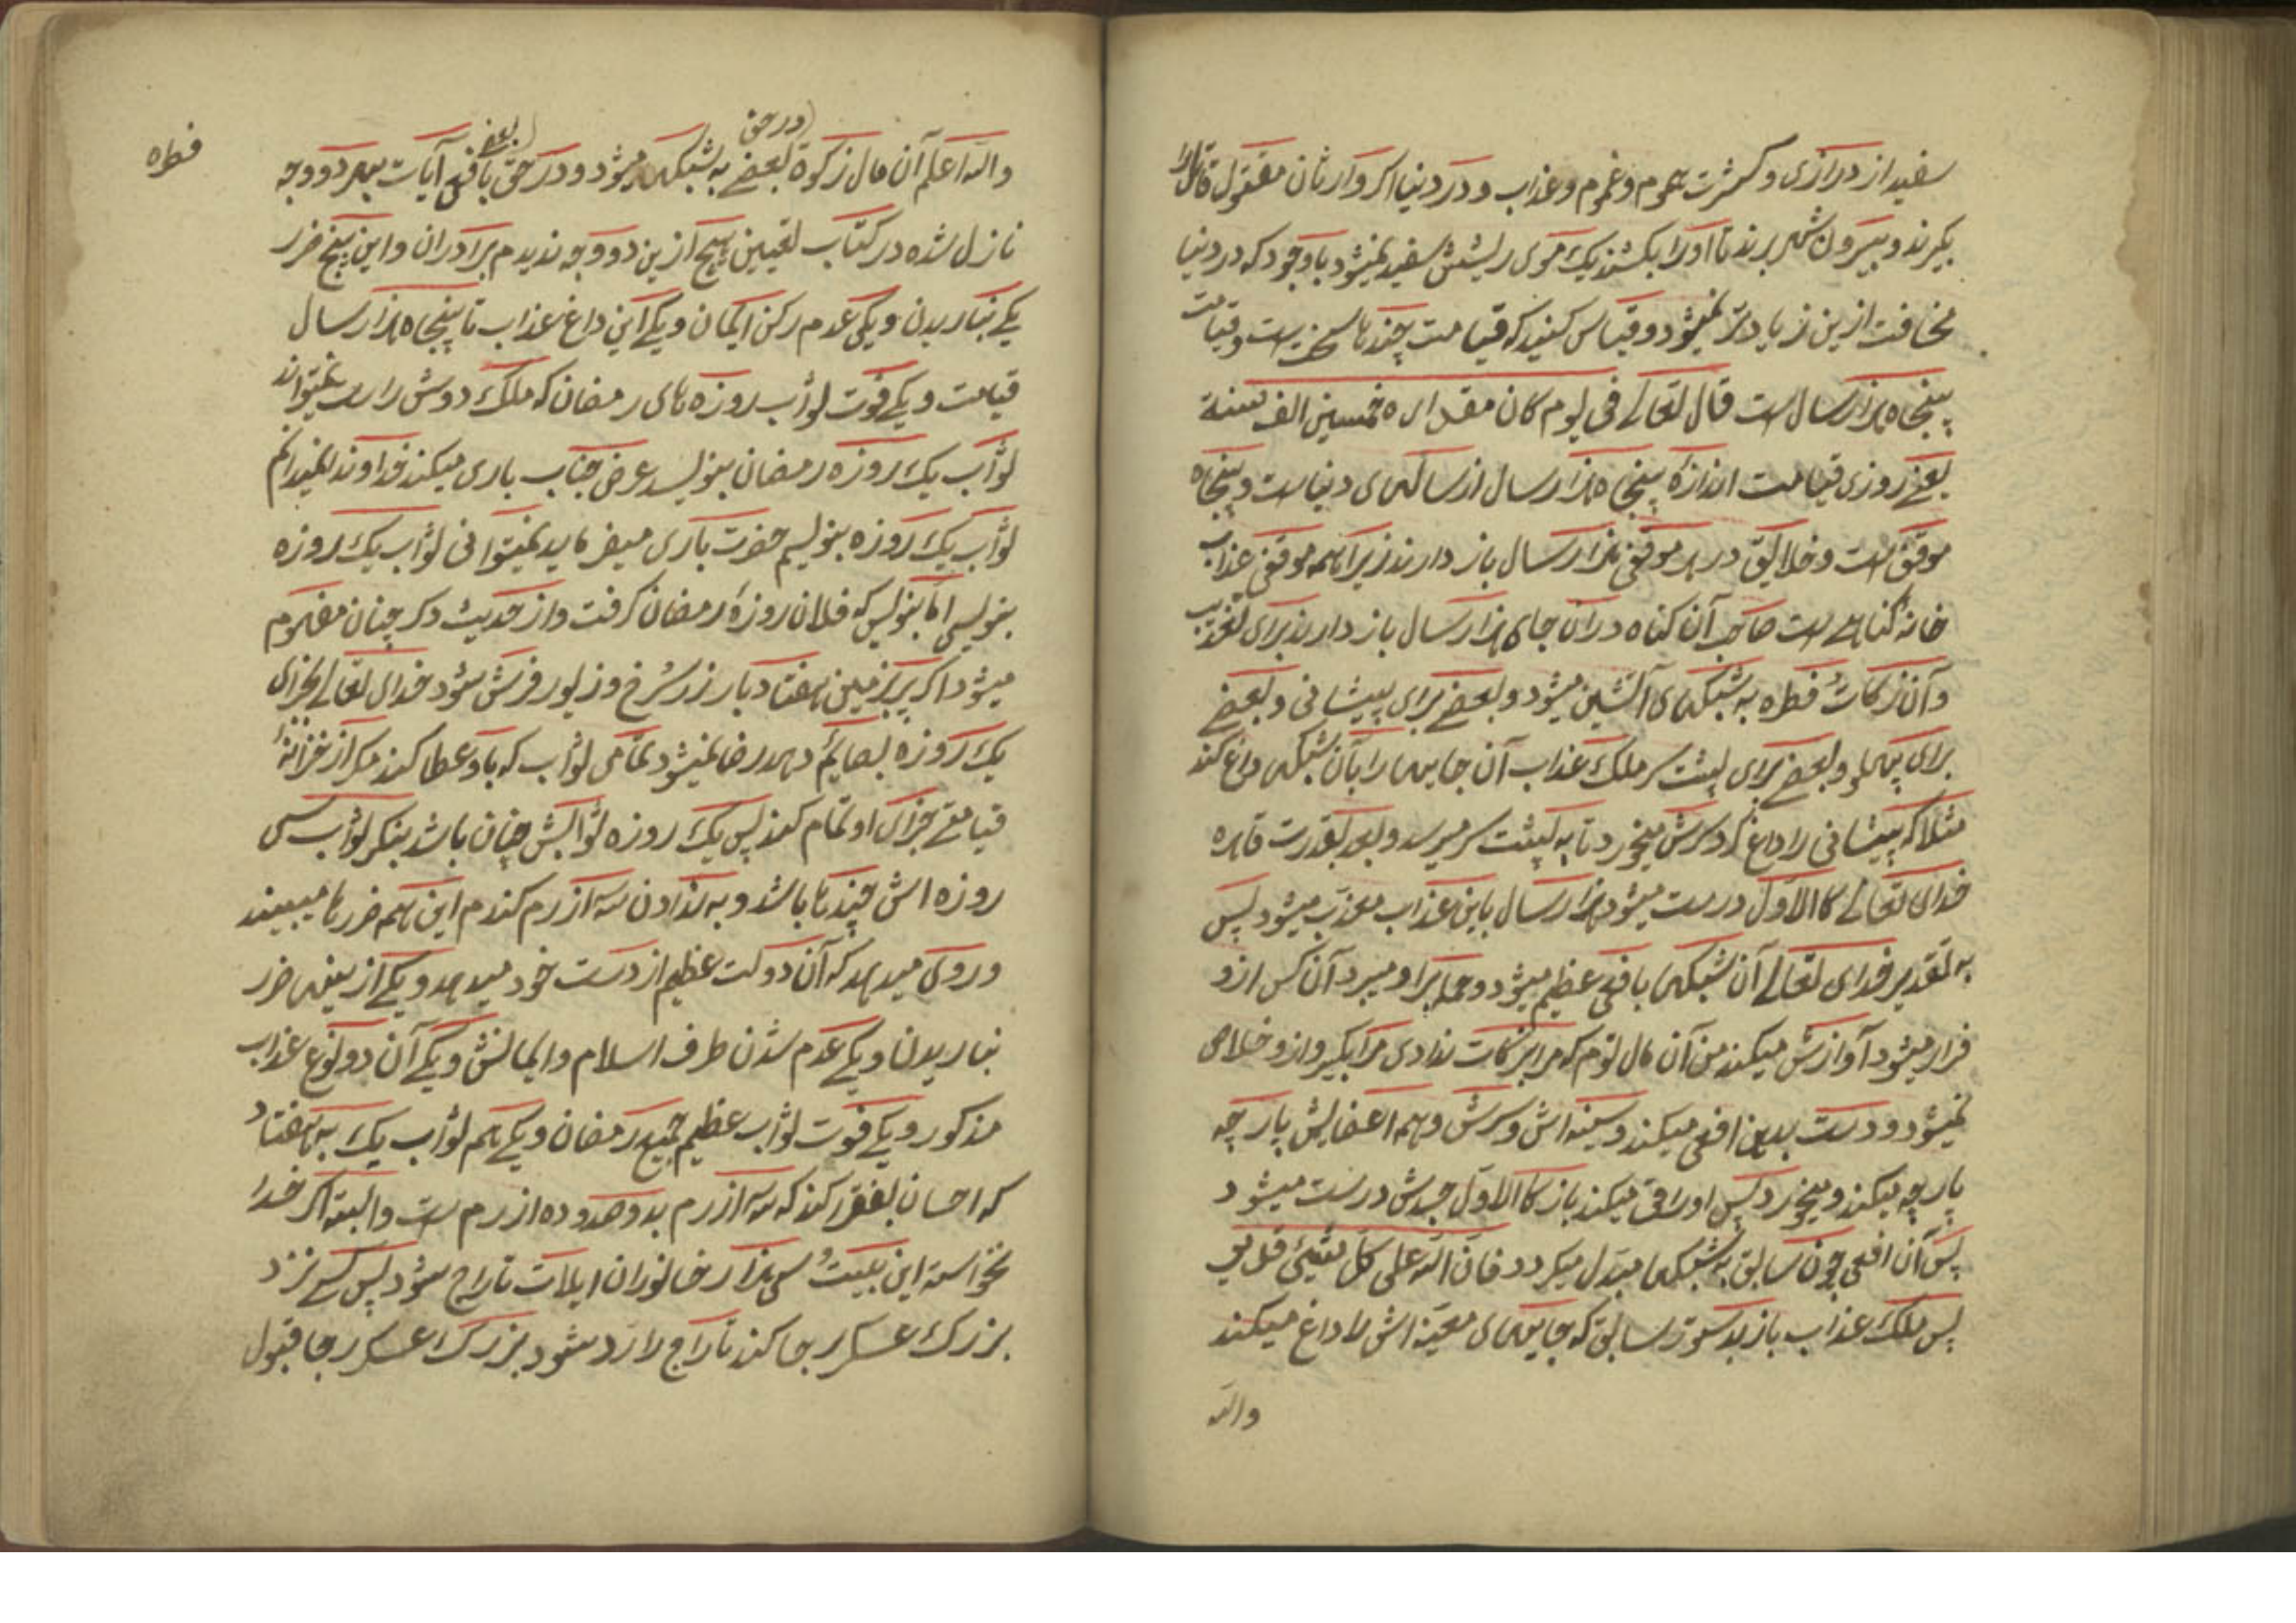 سفید از درازی و کثرت هموم و غموم و عذاب و در دنیا اکر وارثان مقتول قاتل را
بکیرند و بیرون شهر برند تا او را بکشند یک موی ریشش سفید نمیشود باوجود که در دنیا
مخافت ازین زیادتر نمیشود و قیاس کنید که قیامت چندها سخت است و قیامت
پنجاه هزار سال است قال تعالی فی یوم کان مقداره خمسین الف سنة
یعنی روزی قیامت اندازه پنجاه هزار سال از سالهای دنیاست و پنجاه
موقف است و خلایق در هر موقفی هزار سال باز دارند زیرا همه موقفی عذاب
خانه کناهی است صاحب آن کناه در آن جای هزار سال باز دارند برای تعذیب
و آن زکات فطره به شبکهای آتشین میشود و بعضے برای پیشانی و بعضے
برای پهلو و بعضے برای پشت سر ملک عذاب آن جایها را بآن شبکها داغ کند
مثلا که پیشانی را داغ کرد سرش میخورد تا به پشت سر میرسد و بعد بقدرت قاهره
خدای تعالی کالاول درست میشود هزار سال باین عذاب معذب میشود پس
به تقدیر خدای تعالی آن شبکها بافعی عظیم میشود و حمله بر او میبرد آن کس ازو
فرار میشود آوازش میکند من آن مال توم که مرا بزکات ندادی مرا بکیر و ازو خلاصی
نمیشود و دست بدین افعی میکند و سینه اش و سرش و همه اعضایش پارچه
پارچه میکند و میخورد پس او را قی میکند باز کالاول جسدش درست میشود
پس آن افعی چون سابق به شبکها مبدل میکردد فان الله علی کل شیئ قدیر
پس ملک عذاب باز بدستور سابق که جایهای معینه اش را داغ میکند
والله
در حق
بعض
فطره
والله اعلم آن مال زکوة بعضے به شبکها میشود و در حق بافعی آیات بهر دو وجه
نازل شده در کتاب تعیین هیچ ازین دو وجه ندیدم برادران و این پنج ضرر
یکے نباریدن و یکی عدم رکن ایمان و یکے این داغ عذاب تا پنجاه هزار سال
قیامت و یکے فوت ثواب روزه های رمضان که ملک دوش راست نمیتواند
ثواب یک روزه رمضان بنویسد عرض جناب باری میکند خداوندا نمیدانم
ثواب یک روزه بنویسم حضرت باری میفرماید نمیتوانی ثواب یک روزه
بنویسی اما بنویس که فلان روزهٔ رمضان کرفت و از حدیث دکر چنان مفهوم
میشود اکر بر زمین هفتاد بار زر سرخ و زیور فرش شود خدای تعالی بجزای
یک روزه بصایم دهد رضا نمیشود تمامی ثواب که باو عطا کند مکر از خزانهٔ
قیامتے جزای او تمام کند پس یک روزه ثوابش چنان باشد بنکر ثواب سی
روزه اش چندها باشد و به ندادن سه ازرم کندم این همه ضررها میبیند
و روی میدهد که آن دولت عظیم از دست خود میدهد و یکے از ینها ضرر
نباریدن و یکے عدم شدن طرف اسلام و ایمانش و یکے آن دو نوع عذاب
مذکور و یکے فوت ثواب عظیم جمیع رمضان و یکے هم ثواب یک به هفتاد
که احسان بفقرا کند که سه ازرم بدو صد و ده ازرم است والبته اکر خدا
نخواسته این بیست سی هزار خانوران ایلات تاراج شود پس کسے نزد
بزرک عسکر رجا کند تاراج را رد شود بزرک عسکر رجا قبول